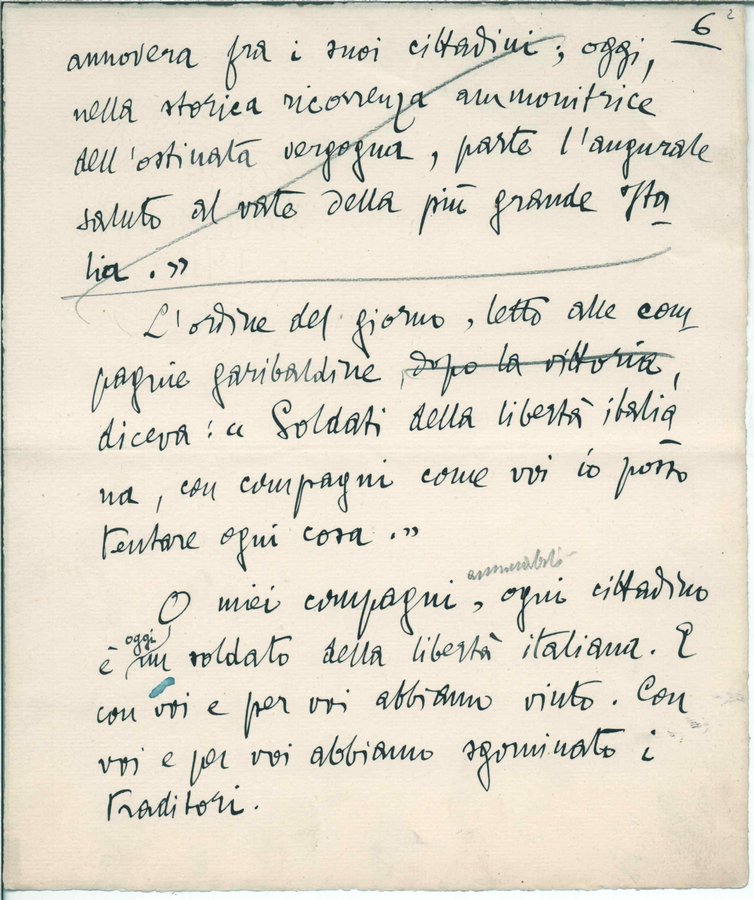 6
2
annovera fra i suoi cittadini; oggi,
nella storica ricorrenza ammonitrice
dell'ostinata vergogna, parte l'augurale
saluto al vate della più grande Ita
lia.»
L'ordine del giorno, letto alle com-
pagnie garibaldine, dopo la vittoria,
diceva: « Soldati della libertà italia
na, con compagni come voi io posso
tentare ogni cosa.»
ammirabili
O miei compagni, ogni cittadino
oggi
è un soldato della libertà italiana. E
con voi e per voi abbiamo vinto. Con
voi e per voi abbiamo sgominato i
traditori.